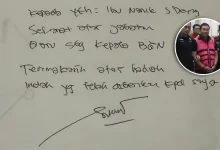 Kepada Yth: Ibu Nanik S Deyang
Selamat atas jabatan
Baru sbg Kepala BGN
Terimakasih atas hadiah
indah yg telah diberikan kpd saya